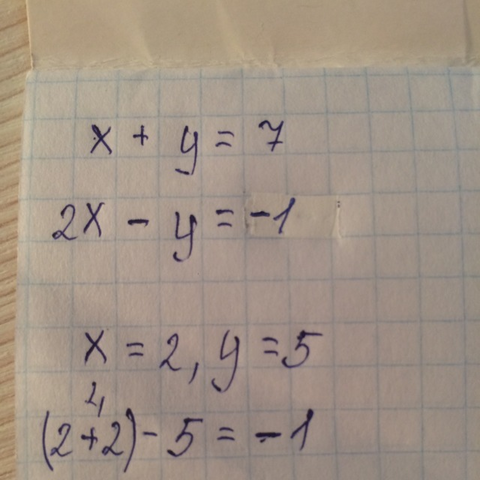 x + y = 7
2x - y = -1
x = 2, y = 5
4
(2+2) - 5 = -1